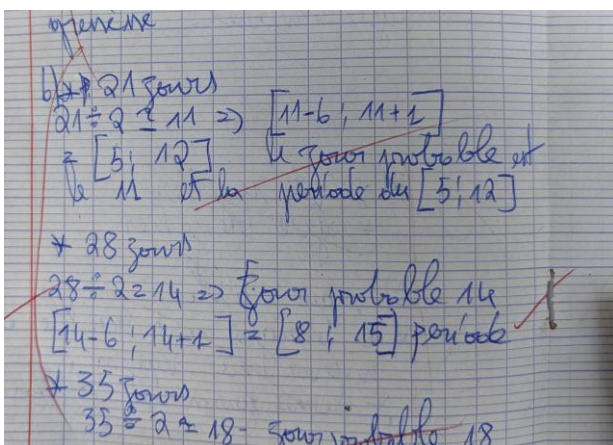 b) * 21 jours
21 ÷ 2 ≃ 11 => [11-6 ; 11+1]
= [5 ; 12] le jour probable est
le 11 et la période du [5 ; 12]
* 28 jours
28 ÷ 2 = 14 => jour probable 14
[14-6 ; 14+1] = [8 ; 15] période
* 35 jours
35 ÷ 2 ≈ 18 - jour probable 18